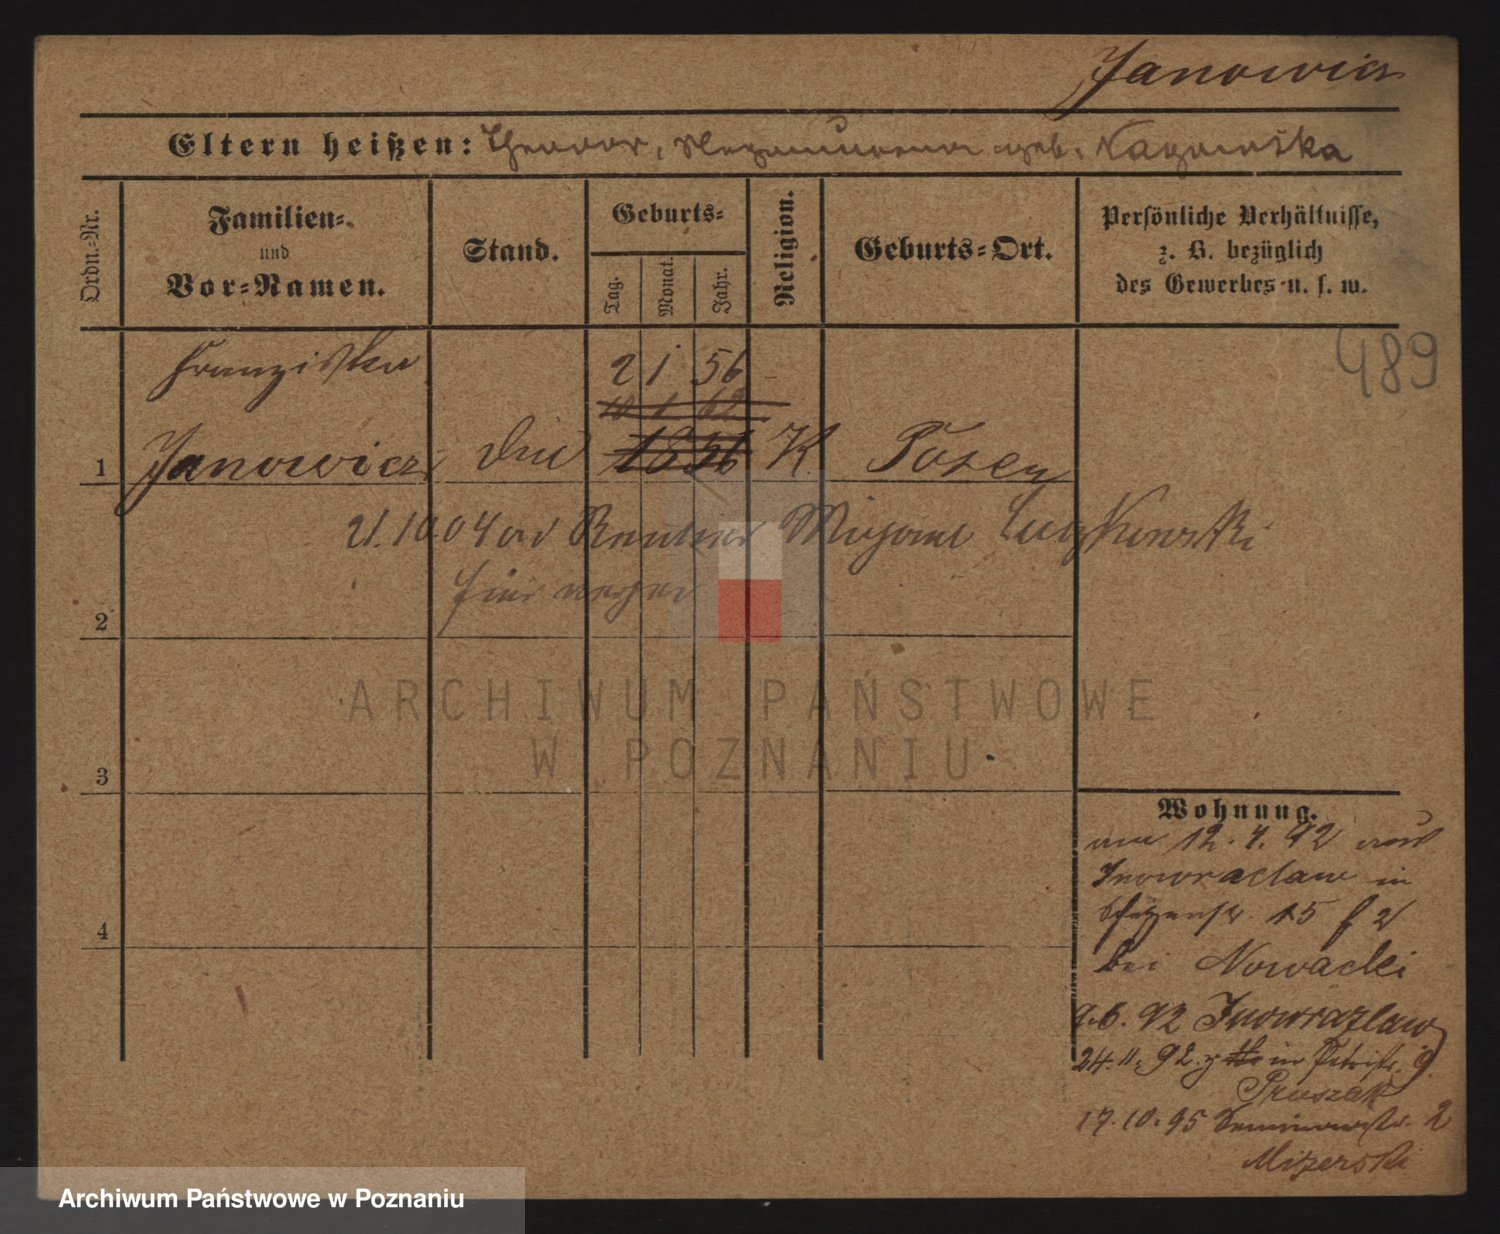 Janowicz
Eltern heißen: Theodor, geb. Nagorska
Ordn.-Nr.
Familien-
und
Vor-Namen.
Stand.
Geburts-
Tag.
Monat.
Jahr.
Religion.
Geburts-Ort.
Persönliche Verhältnisse,
z. B. bezüglich
des Gewerbes u. s. w.
489
Franziska 2 1 56
1 Janowicz 1856 K. Posen
21.10.04 Rentner
2
3
4
ARCHIWUM PAŃSTWOWE
W POZNANIU
Wohnung.
12.4.92 aus
Inowraclaw in
15 2
bei Nowacki
9.6.92 Inowrazlaw
24.11.92 in Petristr. 9.
Pruszak
17.10.95 2
Mizerski
Archiwum Państwowe w Poznaniu